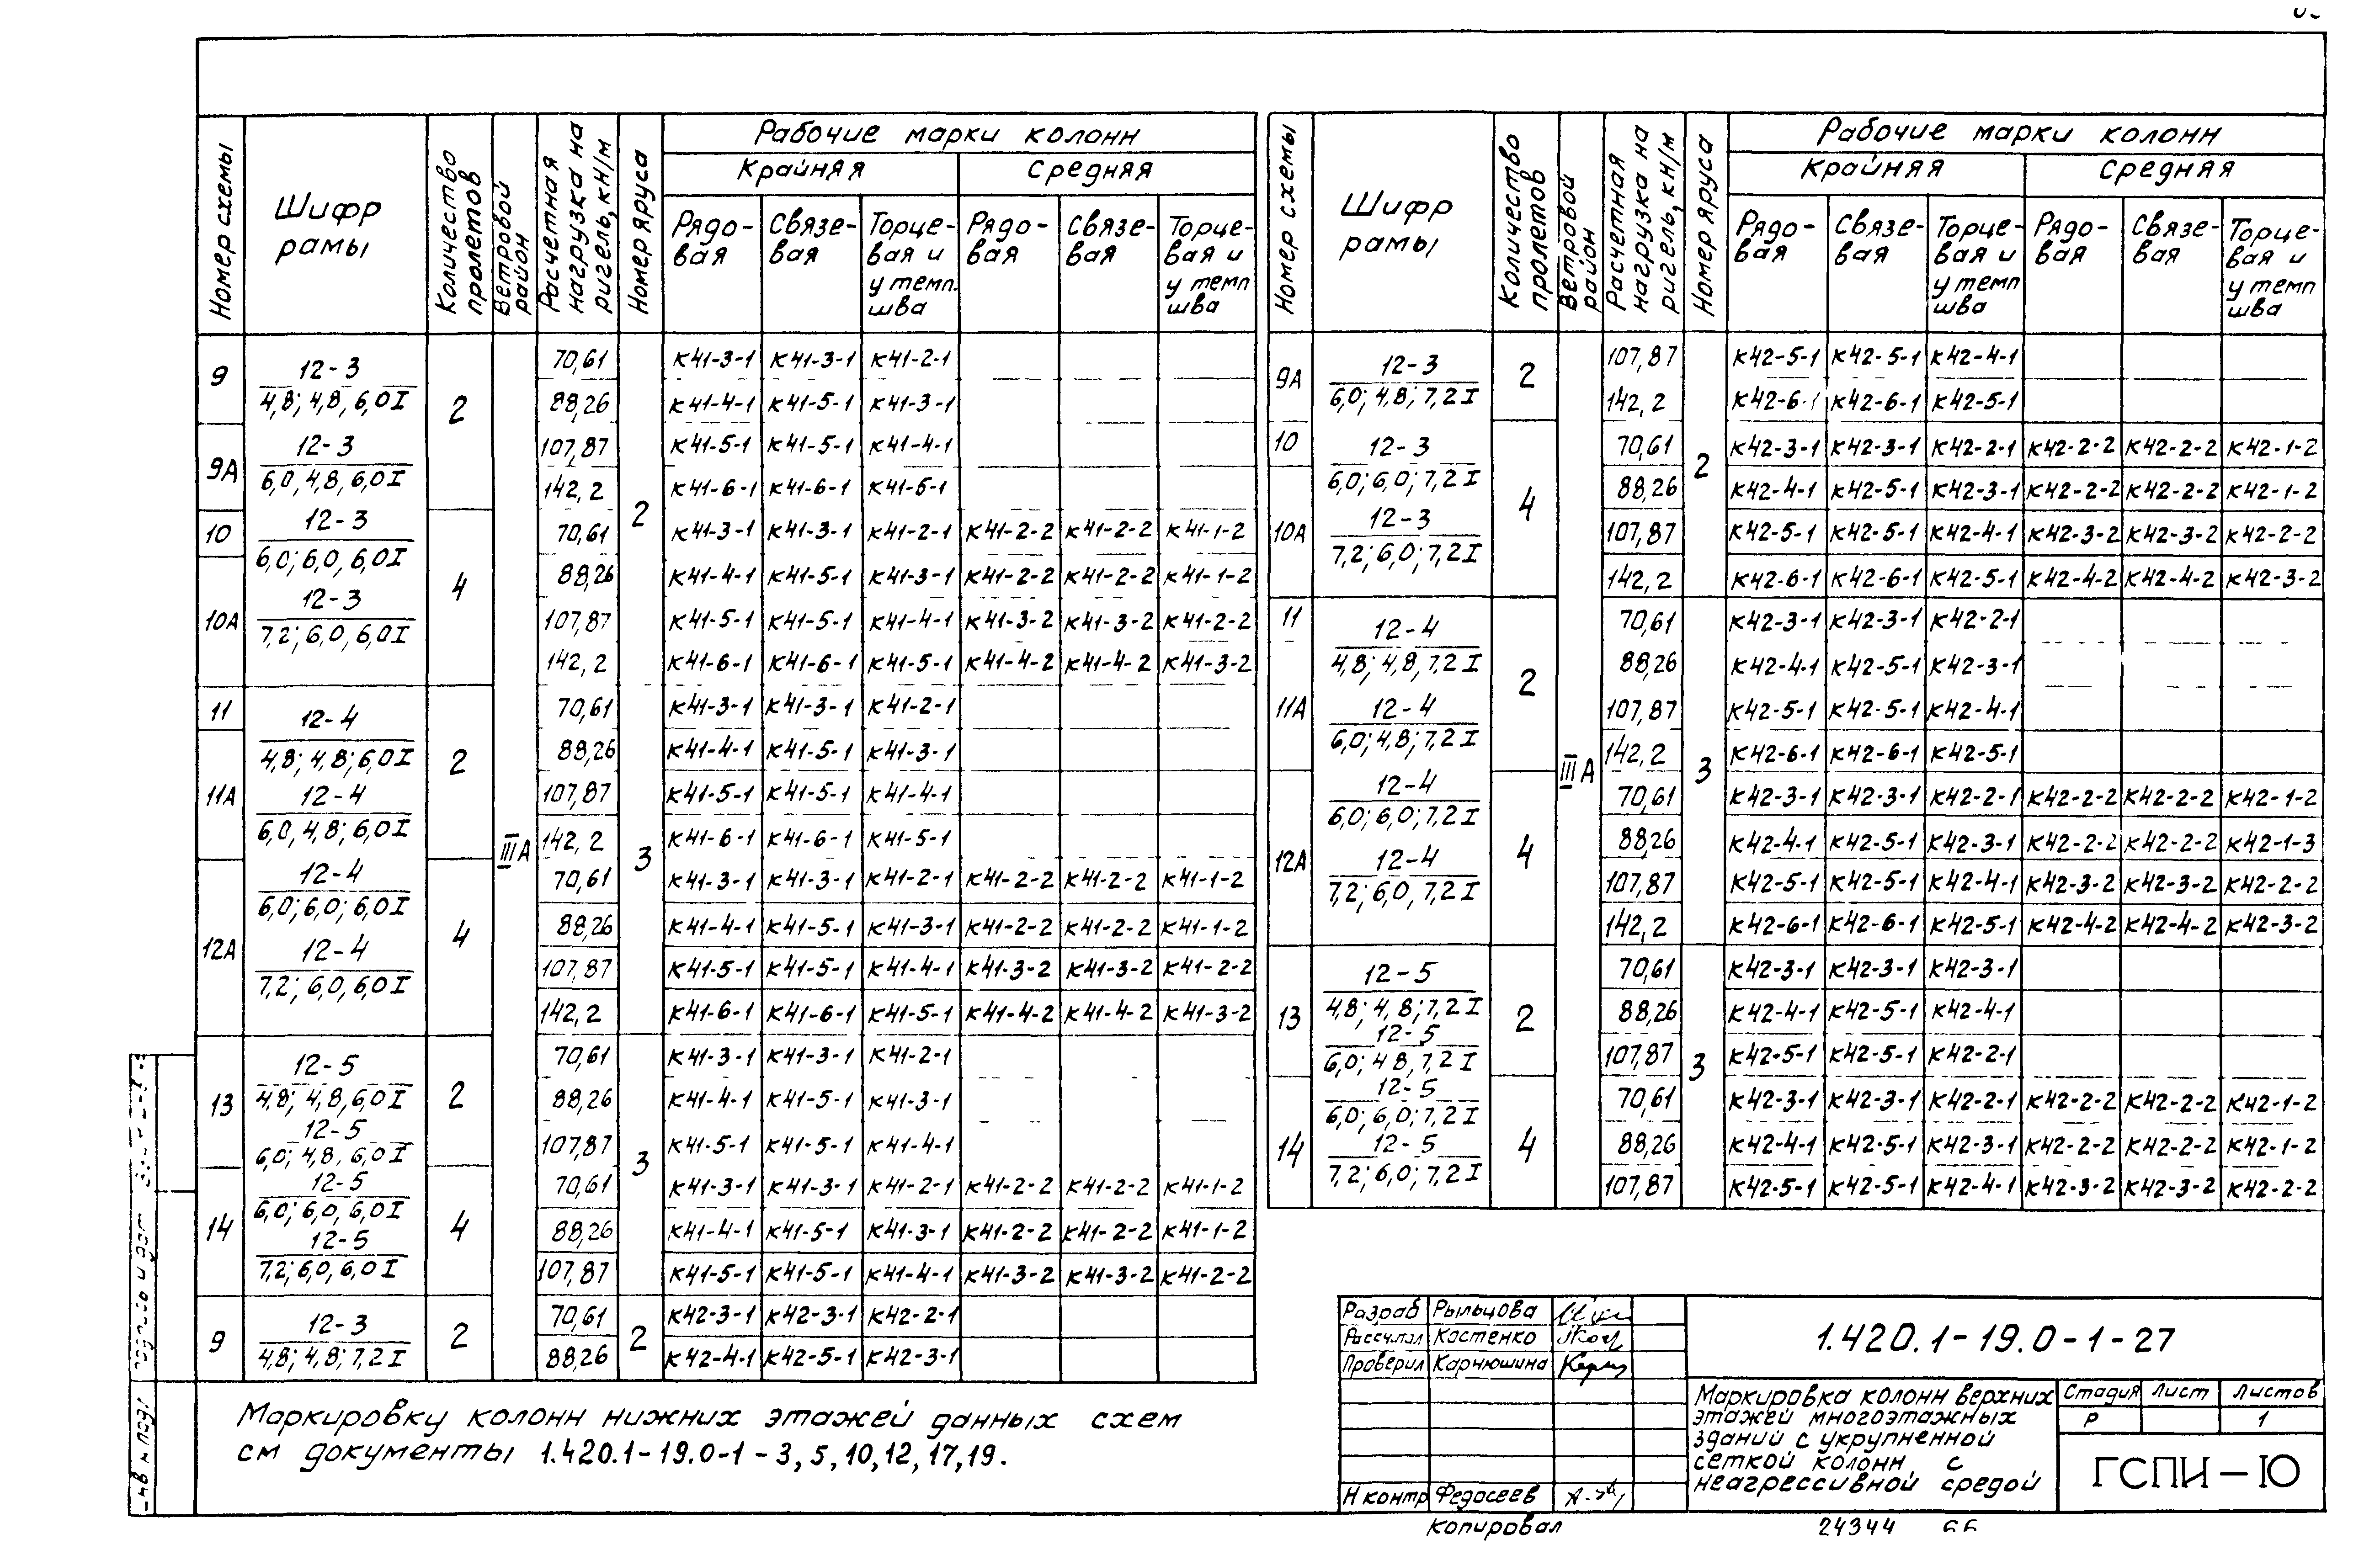 Номер схемы
Шифр рамы
Количество пролетов
Ветровой район
Расчетная нагрузка на ригель, кН/м
Номер яруса
Рабочие марки колонн
Крайняя Средняя
Рядо-вая Связе-вая Торце-вая и у темп. шва Рядо-вая Связе-вая Торце-вая и у темп шва
9 12-3 2 70,61 К41-3-1 К41-3-1 К41-2-1
4,8; 4,8, 6,0 I 88,26 К41-4-1 К41-5-1 К41-3-1
9А 12-3 107,87 К41-5-1 К41-5-1 К41-4-1
6,0, 4,8, 6,0 I 142,2 К41-6-1 К41-6-1 К41-5-1
2
10 12-3 4 70,61 К41-3-1 К41-3-1 К41-2-1 К41-2-2 К41-2-2 К41-1-2
6,0; 6,0, 6,0 I 88,26 К41-4-1 К41-5-1 К41-3-1 К41-2-2 К41-2-2 К41-1-2
10А 12-3 107,87 К41-5-1 К41-5-1 К41-4-1 К41-3-2 К41-3-2 К41-2-2
7,2; 6,0, 6,0 I 142,2 К41-6-1 К41-6-1 К41-5-1 К41-4-2 К41-4-2 К41-3-2
11 12-4 2 70,61 К41-3-1 К41-3-1 К41-2-1
4,8; 4,8; 6,0 I 88,26 К41-4-1 К41-5-1 К41-3-1
11А 12-4 107,87 К41-5-1 К41-5-1 К41-4-1
6,0, 4,8; 6,0 I 142,2 К41-6-1 К41-6-1 К41-5-1
III А 3
12-4 4 70,61 К41-3-1 К41-3-1 К41-2-1 К41-2-2 К41-2-2 К41-1-2
6,0; 6,0; 6,0 I 88,26 К41-4-1 К41-5-1 К41-3-1 К41-2-2 К41-2-2 К41-1-2
12А 12-4 107,87 К41-5-1 К41-5-1 К41-4-1 К41-3-2 К41-3-2 К41-2-2
7,2; 6,0, 6,0 I 142,2 К41-6-1 К41-6-1 К41-5-1 К41-4-2 К41-4-2 К41-3-2
13 12-5 2 70,61 К41-3-1 К41-3-1 К41-2-1
4,8; 4,8, 6,0 I 88,26 К41-4-1 К41-5-1 К41-3-1
12-5 107,87 К41-5-1 К41-5-1 К41-4-1
6,0; 4,8, 6,0 I
3
14 12-5 4 70,61 К41-3-1 К41-3-1 К41-2-1 К41-2-2 К41-2-2 К41-1-2
6,0; 6,0, 6,0 I 88,26 К41-4-1 К41-5-1 К41-3-1 К41-2-2 К41-2-2 К41-1-2
12-5 107,87 К41-5-1 К41-5-1 К41-4-1 К41-3-2 К41-3-2 К41-2-2
7,2; 6,0, 6,0 I
9 12-3 2 70,61 2 К42-3-1 К42-3-1 К42-2-1
4,8; 4,8; 7,2 I 88,26 К42-4-1 К42-5-1 К42-3-1
Маркировку колонн нижних этажей данных схем
см документы 1.420.1-19.0-1-3, 5, 10, 12, 17, 19.
Номер схемы
Шифр рамы
Количество пролетов
Ветровой район
Расчетная нагрузка на ригель, кН/м
Номер яруса
Рабочие марки колонн
Крайняя Средняя
Рядо-вая Связе-вая Торце-вая и у темп шва Рядо-вая Связе-вая Торце-вая и у темп шва
9А 12-3 2 107,87 К42-5-1 К42-5-1 К42-4-1
6,0; 4,8; 7,2 I 142,2 К42-6-1 К42-6-1 К42-5-1
10 12-3 4 70,61 2 К42-3-1 К42-3-1 К42-2-1 К42-2-2 К42-2-2 К42-1-2
6,0; 6,0; 7,2 I 88,26 К42-4-1 К42-5-1 К42-3-1 К42-2-2 К42-2-2 К42-1-2
10А 12-3 107,87 К42-5-1 К42-5-1 К42-4-1 К42-3-2 К42-3-2 К42-2-2
7,2; 6,0; 7,2 I 142,2 К42-6-1 К42-6-1 К42-5-1 К42-4-2 К42-4-2 К42-3-2
11 12-4 2 70,61 К42-3-1 К42-3-1 К42-2-1
4,8; 4,8, 7,2 I 88,26 К42-4-1 К42-5-1 К42-3-1
11А 12-4 107,87 К42-5-1 К42-5-1 К42-4-1
6,0; 4,8; 7,2 I 142,2 К42-6-1 К42-6-1 К42-5-1
III А 3
12-4 4 70,61 К42-3-1 К42-3-1 К42-2-1 К42-2-2 К42-2-2 К42-1-2
6,0; 6,0; 7,2 I 88,26 К42-4-1 К42-5-1 К42-3-1 К42-2-2 К42-2-2 К42-1-3
12А 12-4 107,87 К42-5-1 К42-5-1 К42-4-1 К42-3-2 К42-3-2 К42-2-2
7,2; 6,0, 7,2 I 142,2 К42-6-1 К42-6-1 К42-5-1 К42-4-2 К42-4-2 К42-3-2
13 12-5 2 70,61 К42-3-1 К42-3-1 К42-3-1
4,8; 4,8; 7,2 I 88,26 К42-4-1 К42-5-1 К42-4-1
12-5 107,87 К42-5-1 К42-5-1 К42-2-1
6,0; 4 8, 7,2 I
3
14 12-5 4 70,61 К42-3-1 К42-3-1 К42-2-1 К42-2-2 К42-2-2 К42-1-2
6,0; 6,0; 7,2 I 88,26 К42-4-1 К42-5-1 К42-3-1 К42-2-2 К42-2-2 К42-1-2
12-5 107,87 К42-5-1 К42-5-1 К42-4-1 К42-3-2 К42-3-2 К42-2-2
7,2; 6,0; 7,2 I
Разраб Рыльцова
Рассчитал Костенко
Проверил Карнюшина
Н контр Федосеев
1.420.1-19.0-1-27
Маркировка колонн верхних
этажей многоэтажных
зданий с укрупненной
сеткой колонн с
неагрессивной средой
Стадия Лист Листов
Р 1
ГСПИ-10
Копировал 24344 66